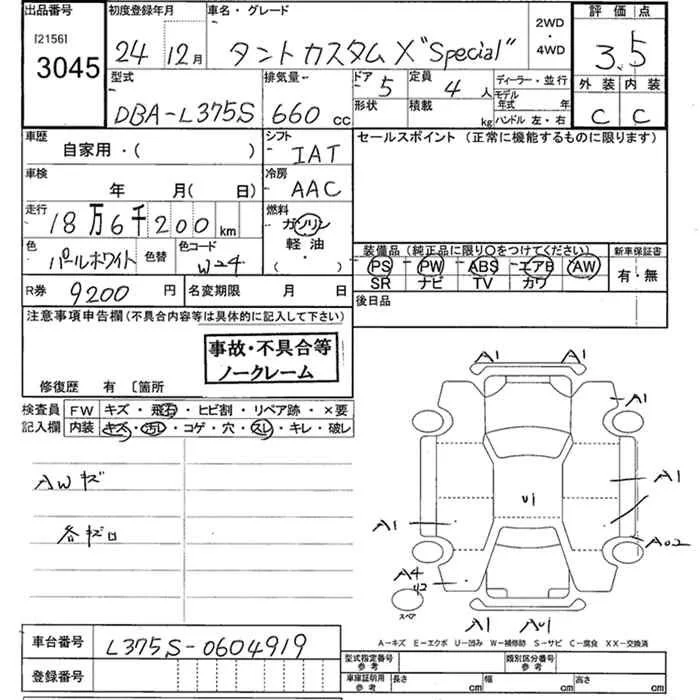 出品番号
[2156]
3045
初度登録年月
24年12月
車名・グレード
タントカスタム X "Special"
2WD
・
4WD
評価点
3.5
外装 内装
C C
型式
DBA-L375S
排気量
660 cc
ドア 5
形状
定員 4 人
積載 kg
ディーラー・並行
モデル年式 年
ハンドル 左・右
車歴
自家用・( )
シフト
IAT
セールスポイント (正常に機能するものに限ります)
車検
年 月( 日)
冷房
AAC
走行
18万6千200km
燃料
ガソリン
軽油
( )
色
パールホワイト
色替
色コード
W24
装備品(純正品に限り○をつけてください)
新車保証書
PS PW ABS エアB AW
SR ナビ TV カワ
有・無
R券 9200 円
名変期限 月 日
後日品
注意事項申告欄(不具合内容等は具体的に記入して下さい)
事故・不具合等
ノークレーム
修復歴 有 〔箇所
検査員
記入欄
FW キズ・飛石・ヒビ割・リペア跡・×要
内装 キズ・汚レ・コゲ・穴・スレ・キレ・破レ
AWキズ
各キズ凹
A1 A1
A1
A1
U1
A1
A02
A4
スペア
A1 AU1
A-キズ E-エクボ U-凹み W-補修跡 S-サビ C-腐食 XX-交換済
車台番号
L375S-0604919
登録番号
型式指定番号
参考
類別区分番号
参考
車庫証明用
参考
長さ cm
幅 cm
高さ cm